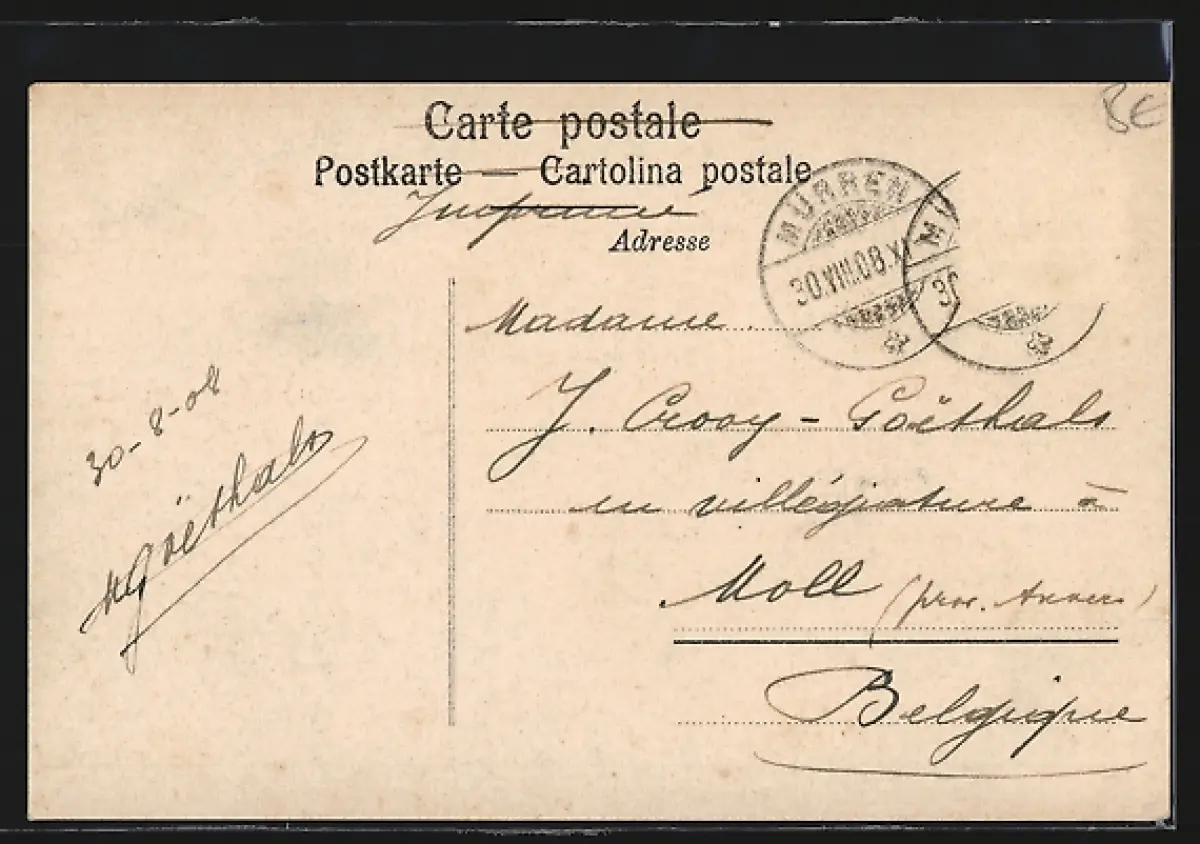 Carte postale
Postkarte — Cartolina postale
Imprimé
Adresse
MÜRREN
30.VIII.08.XI
MÜ
30
BE
Madame
J. Crooy - Goëthals
en villégiature à
Moll (prov. Anvers)
Belgique
30-8-08
MGoëthals